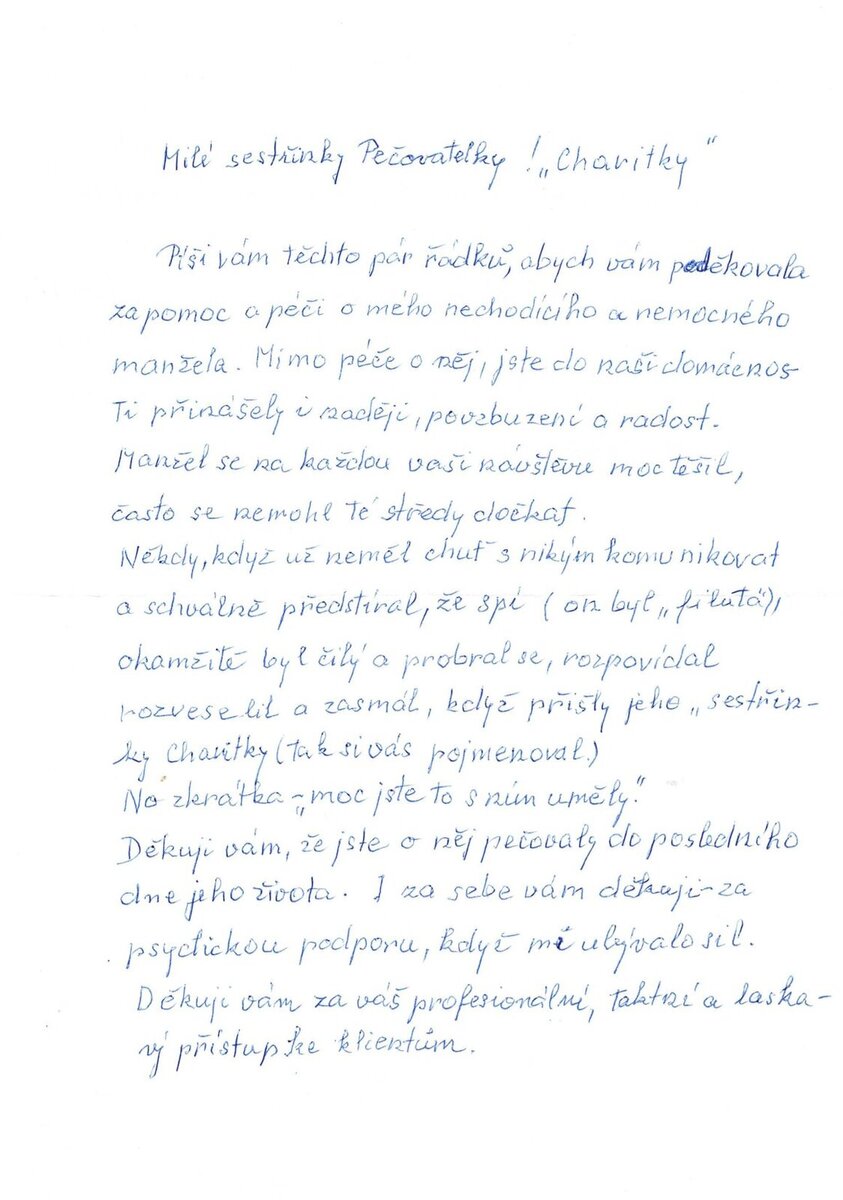 Milé sestřinky Pečovatelky! „Charitky"
Píši vám těchto pár řádků, abych vám poděkovala
za pomoc a péči o mého nechodícího a nemocného
manžela. Mimo péče o něj, jste do naší domácnos-
ti přinášely i naději, povzbuzení a radost.
Manžel se na každou vaši návštěvu moc těšil,
často se nemohl té středy dočkat.
Někdy, když už neměl chuť s nikým komunikovat
a schválně předstíral, že spí (on byl „filuta"),
okamžitě byl čilý a probral se, rozpovídal
rozveselil a zasmál, když přišly jeho „sestřin-
ky Charitky (tak si vás pojmenoval.)
No zkrátka - „moc jste to s ním uměly."
Děkuji vám, že jste o něj pečovaly do posledního
dne jeho života. I za sebe vám děkuji - za
psychickou podporu, když mě ubývalo sil.
Děkuji vám za váš profesionální, taktní a laska-
vý přístup ke klientům.